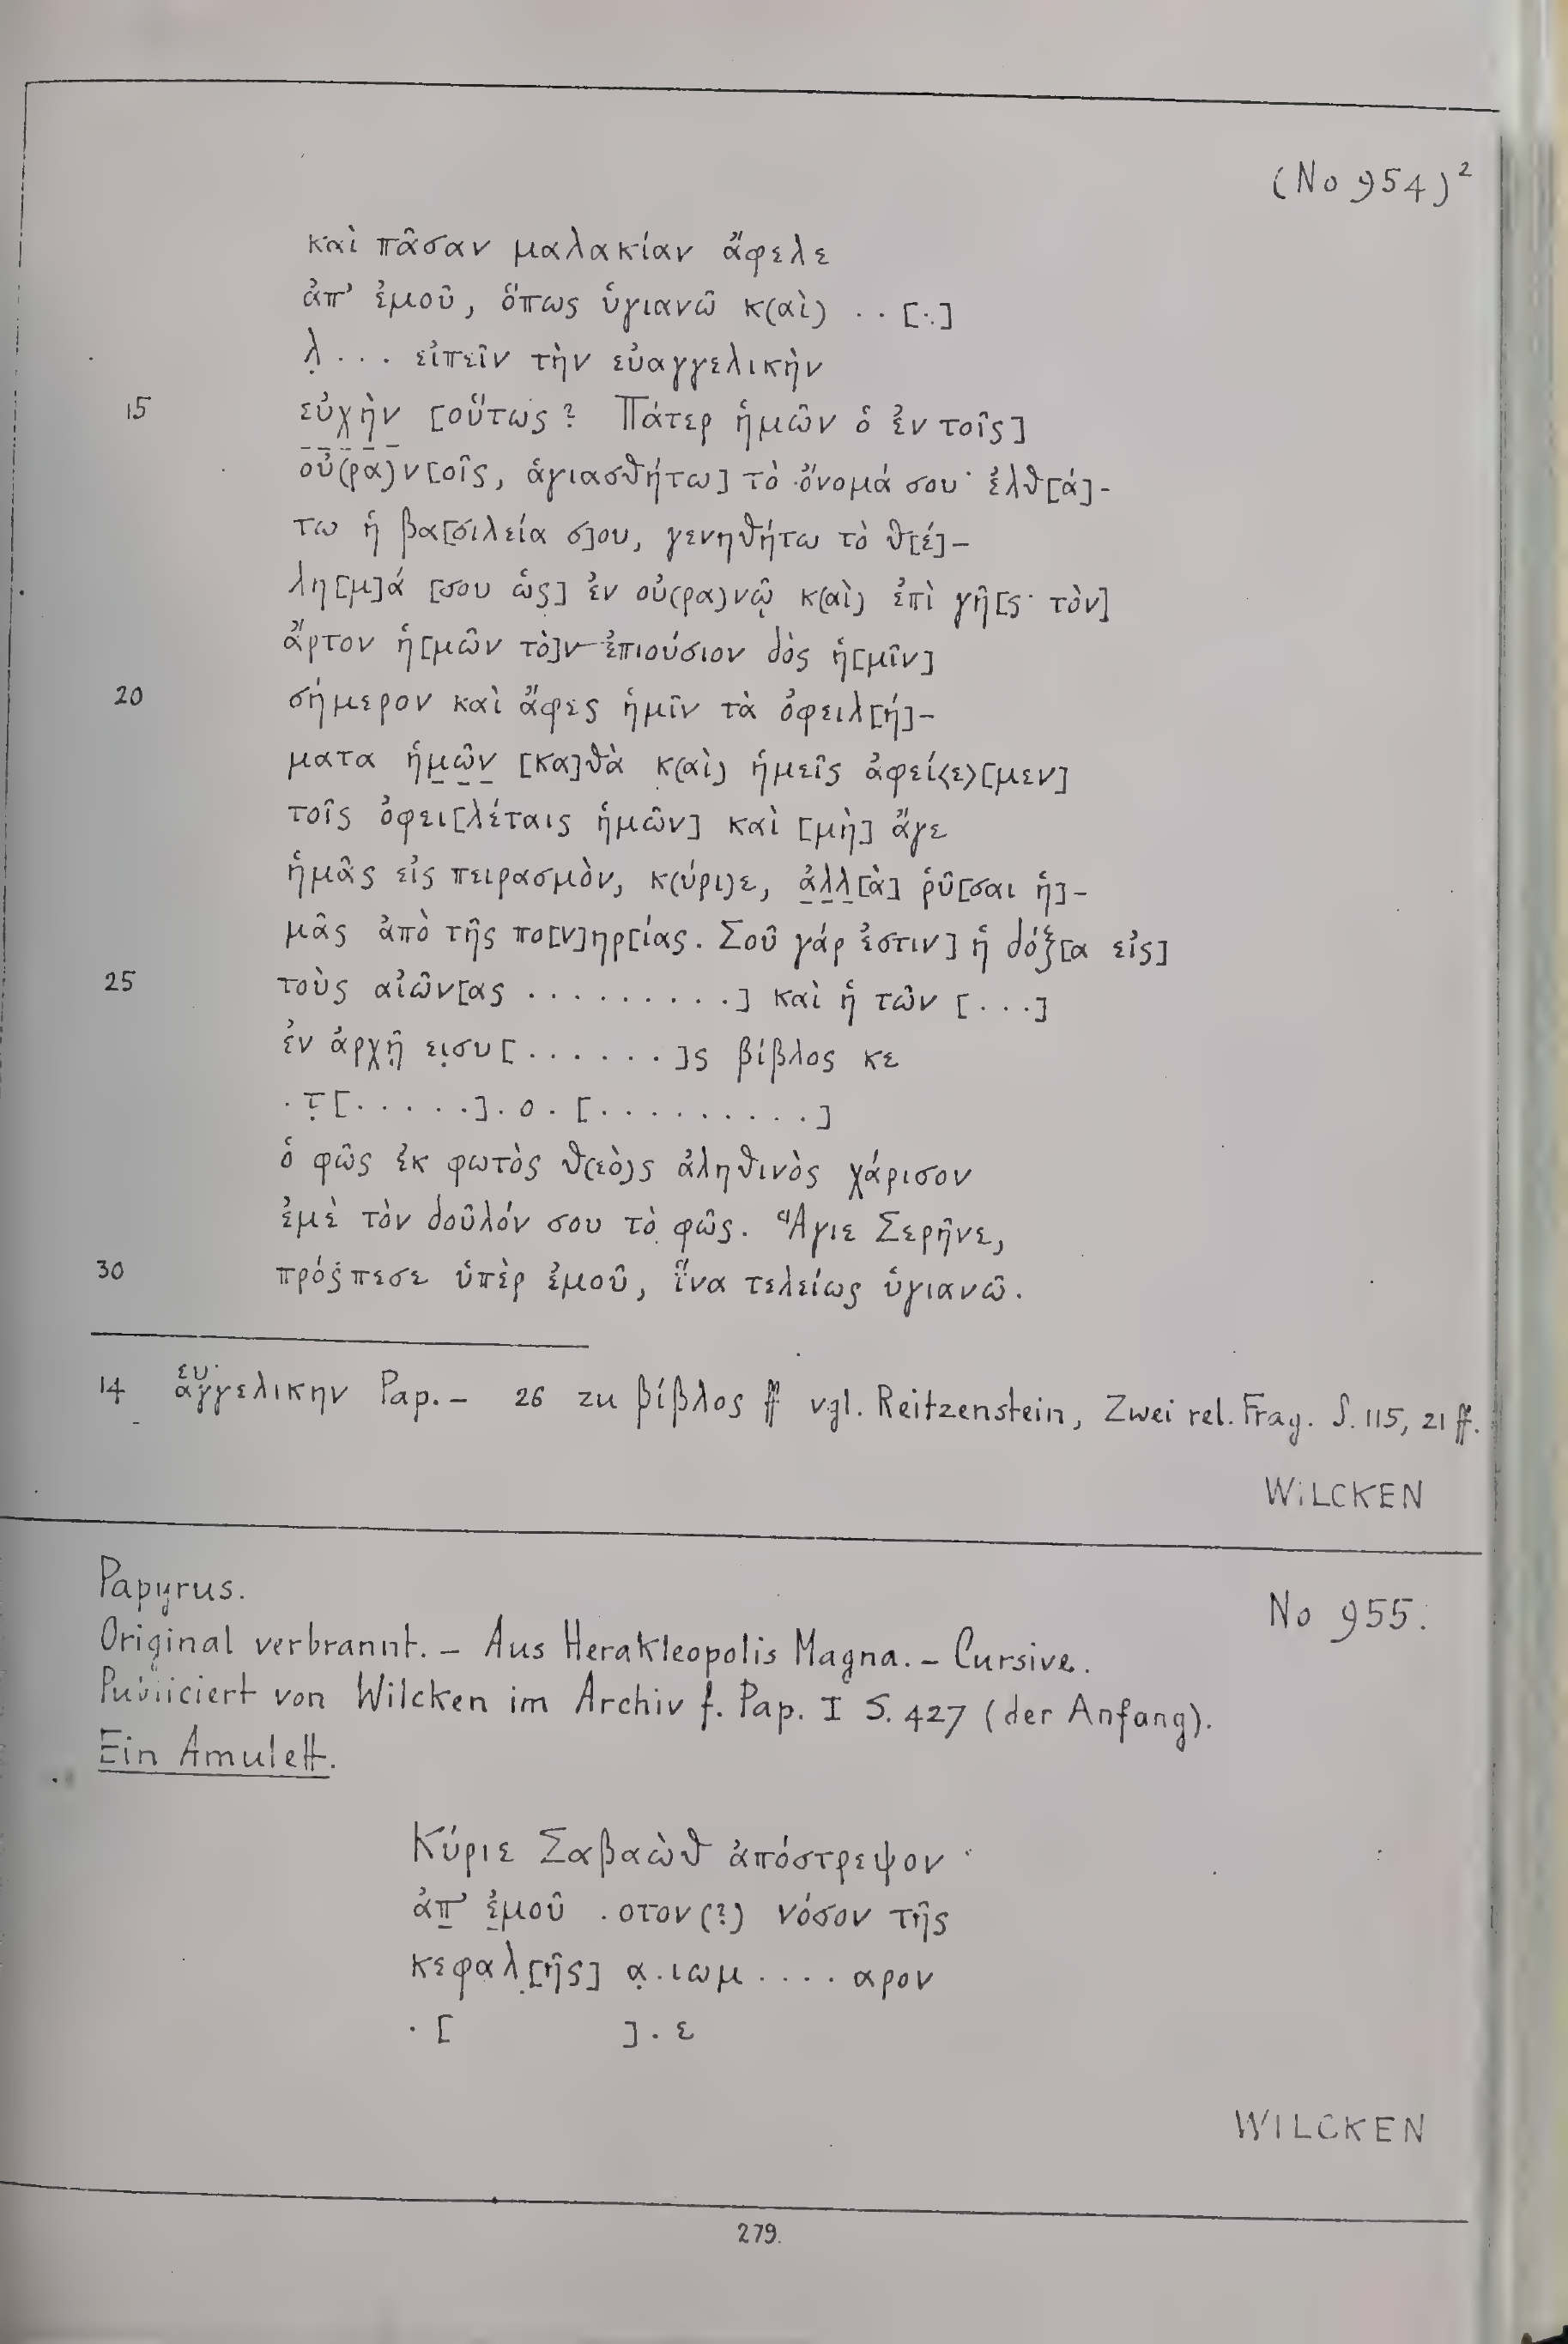 (No 954)²
καὶ πᾶσαν μαλακίαν ἄφελε
ἀπ' ἐμοῦ, ὅπως ὑγιανῶ κ(αὶ) . . [..]
λ̣ . . . εἰπεῖν τὴν εὐαγγελικὴν
15 εὐχὴν [οὕτως? Πάτερ ἡμῶν ὁ ἐν τοῖς]
οὐ(ρα)ν[οῖς, ἁγιασθήτω] τὸ ὄνομά σου· ἐλθ[ά]-
τω ἡ βα[σιλεία σ]ου, γενηθήτω τὸ θ[έ]-
λη[μ]ά [σου ὡς] ἐν οὐ(ρα)νῷ κ(αὶ) ἐπὶ γῆ[ς· τὸν]
ἄρτον ἡ[μῶν τὸ]ν ἐπιούσιον δὸς ἡ[μῖν]
20 σήμερον καὶ ἄφες ἡμῖν τὰ ὀφειλ[ή]-
ματα ἡμῶν [κα]θὰ κ(αὶ) ἡμεῖς ἀφεί<ε>[μεν]
τοῖς ὀφει[λέταις ἡμῶν] καὶ [μὴ] ἄγε
ἡμᾶς εἰς πειρασμὸν, κ(ύρι)ε, ἀλλ[ὰ] ῥῦ[σαι ἡ]-
μᾶς ἀπὸ τῆς πο[ν]ηρ[ίας. Σοῦ γάρ ἐστιν] ἡ δόξ[α εἰς]
25 τοὺς αἰῶν[ας . . . . . . . . .] καὶ ἡ τῶν [. . .]
ἐν ἀρχῇ ει̣συ[. . . . . . .]ς βίβλος κε
. τ̣[. . . . . .] . ο . [. . . . . . . . .]
ὁ φῶς ἐκ φωτὸς θ(εὸ)ς ἀληθινὸς χάρισον
ἐμὲ τὸν δοῦλόν σου τὸ φῶς. Ἅγιε Σερῆνε,
30 πρόσπεσε ὑπὲρ ἐμοῦ, ἵνα τελείως ὑγιανῶ.
14 ευ αγγελικην Pap. — 26 zu βίβλος ff vgl. Reitzenstein, Zwei rel. Frag. S. 115, 21 ff.
WILCKEN
Papyrus.
No 955.
Original verbrannt. — Aus Herakleopolis Magna. — Cursive.
Publiciert von Wilcken im Archiv f. Pap. I S. 427 (der Anfang).
Ein Amulett.
Κύριε Σαβαὼθ ἀπόστρεψον
ἀπ' ἐμοῦ . οτον(?) νόσον τῆς
κεφαλ̣[ῆς] α̣ . ιωμ . . . . αρον
. [ ] . ε
WILCKEN
279.